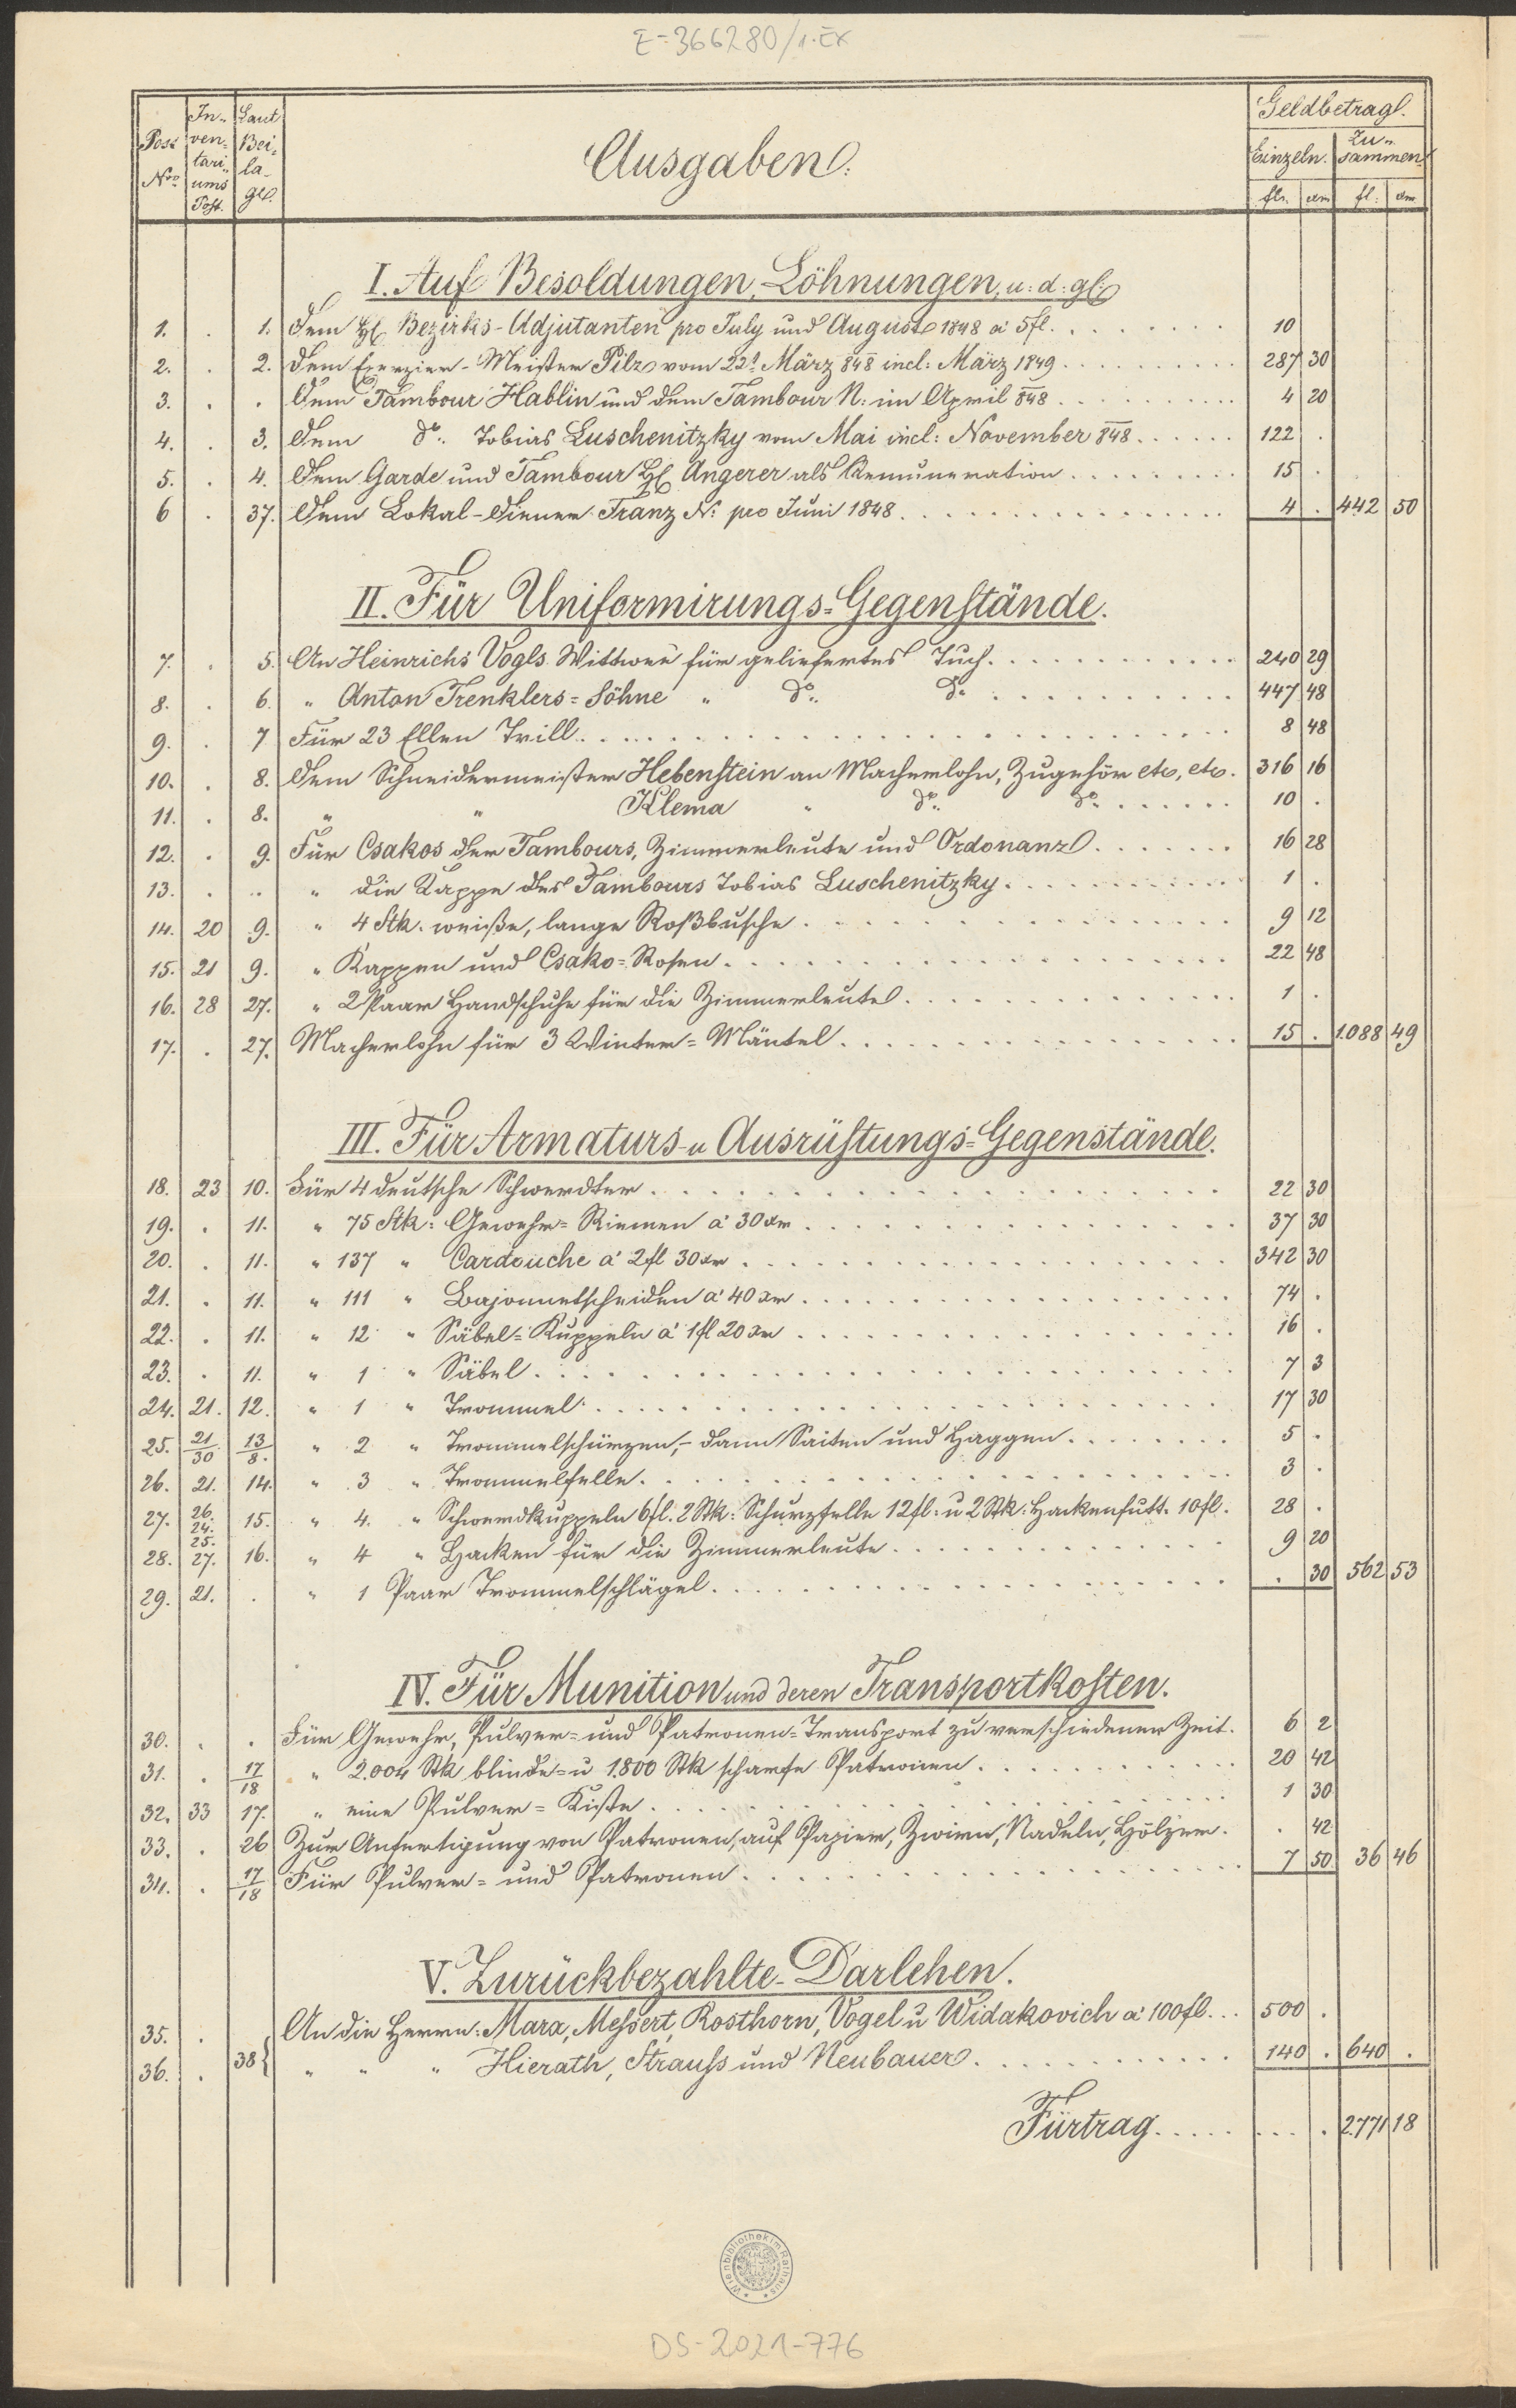 E-366280/1.Ex
Post Nro. | Inventariums Post. | Laut Beilage. | Ausgaben. | Geldbetrag.
Einzeln. | Zusammen
fl. | xr | fl. | xr
I. Auf Besoldungen, Löhnungen, u: d: gl:
1. . 1. Dem H. Bezirks-Adjutanten pro July und August 1848 à 5 fl. 10
2. . 2. Dem Exerzier-Meister Pilz vom 22t März 848 incl: März 1849 287 30
3. . . Dem Tambour Hablin und dem Tambour N: im April 848 4 20
4. . 3. Dem do. Tobias Luschenitzky vom Mai incl: November 848 122 .
5. . 4. Dem Garde und Tambour H. Angerer als Remuneration 15 .
6 . 37. Dem Lokal-Diener Franz N: pro Juni 1848 4 . 442 50
II. Für Uniformirungs-Gegenstände.
7. . 5. An Heinrichs Vogls Wittwe für geliefertes Tuch 240 29
8. . 6. " Anton Trenklers-Söhne " do. do. 447 48
9. . 7 Für 23 Ellen Trill 8 48
10. . 8. Dem Schneidermeister Hebenstein an Macherlohn, Zugehör etc, etc. 316 16
11. . 8. " " Klema " do. do. 10 .
12. . 9. Für Csakos der Tambours, Zimmerleute und Ordonanz 16 28
13. . .. " die Kappe des Tambours Tobias Luschenitzky 1 .
14. 20 9. " 4 Stk. weiße, lange Roßbusche 9 12
15. 21 9. " Kappen und Csako-Rosen 22 48
16. 28 27. " 2 Paar Handschuhe für die Zimmerleute 1 .
17. . 27. Macherlohn für 3 Winter-Mäntel 15 . 1.088 49
III. Für Armaturs- u Ausrüstungs-Gegenstände.
18. 23 10. Für 4 deutsche Schwerdter 22 30
19. . 11. " 75 Stk: Gewehr-Riemen à 30 xr 37 30
20. . 11. " 137 " Cardouche à 2 fl 30 xr 342 30
21. . 11. " 111 " Bajonnetscheiden à 40 xr 74 .
22. . 11. " 12 " Säbel-Kuppeln à 1 fl 20 xr 16 .
23. . 11. " 1 " Säbel 7 3
24. 21. 12. " 1 " Trommel 17 30
25. 21/30 13/8. " 2 " Trommelschürzen, dann Saiten und Haggen 5 .
26. 21. 14. " 3 " Trommelfelle 3 .
27. 26. 24. 15. " 4. " Schwerdkuppeln 6 fl. 2 Stk: Schurzfelle 12 fl: u 2 Stk: Hackenfutt. 10 fl. 28 .
28. 25. 27. 16. " 4 " Hacken für die Zimmerleute 9 20
29. 21. . " 1 Paar Trommelschlägel . 30 562 53
IV. Für Munition und deren Transportkosten.
30. . . Für Gewehr, Pulver- und Patronen-Transport zu verschiedener Zeit. 6 2
31. . 17/18 " 2.004 Stk blinde- u 1.800 Stk scharfe Patronen 20 42
32. 33 17. " eine Pulver-Kiste 1 30
33. . 26 Zur Anfertigung von Patronen, auf Papier, Zwirn, Nadeln, Hölzer. . 42
34. . 17/18 Für Pulver- und Patronen 7 50 36 46
V. Zurückbezahlte-Darlehen.
35. . 38 An die Herrn: Mara, Messert, Rosthorn, Vogel u Widakovich à 100 fl. 500 .
36. . " " " Hierath, Strauss und Neubauer 140 . 640 .
Fürtrag . 2.771 18
Wienbibliothek im Rathaus
DS-2021-776